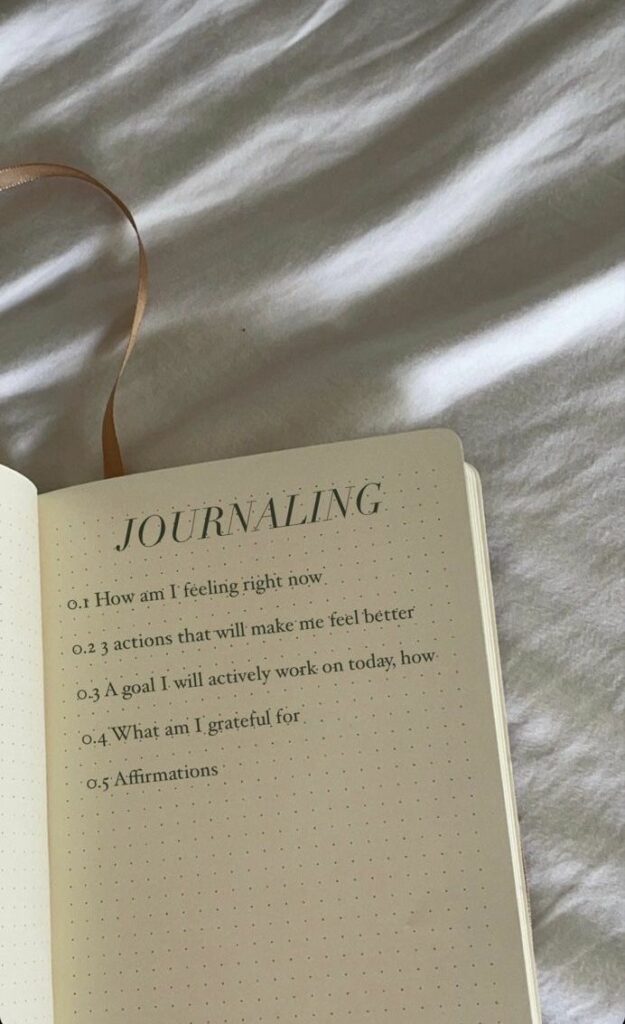 JOURNALING
0.1 How am I feeling right now
0.2 3 actions that will make me feel better
0.3 A goal I will actively work on today, how
0.4 What am I grateful for
0.5 Affirmations